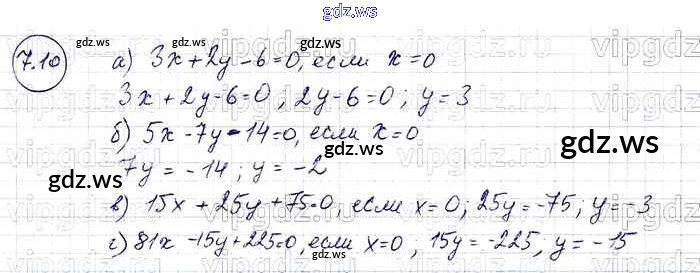 gdz.ws
7.10 а) 3x+2y-6=0, если x=0
3x+2y-6=0; 2y-6=0; y=3
б) 5x-7y-14=0, если x=0
7y=-14; y=-2
в) 15x+25y+75=0, если x=0; 25y=-75; y=-3
г) 81x-15y+225=0, если x=0; 15y=-225; y=-15
gdz.ws
gdz.ws
gdz.ws
gdz.ws
gdz.ws
gdz.ws
gdz.ws
gdz.ws
vipgdz.ws
vipgdz.ws
vipgdz.ws